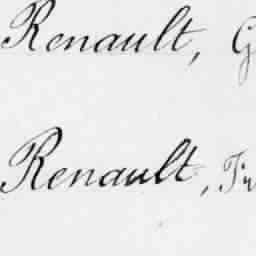 Renault, G
Renault, Fr